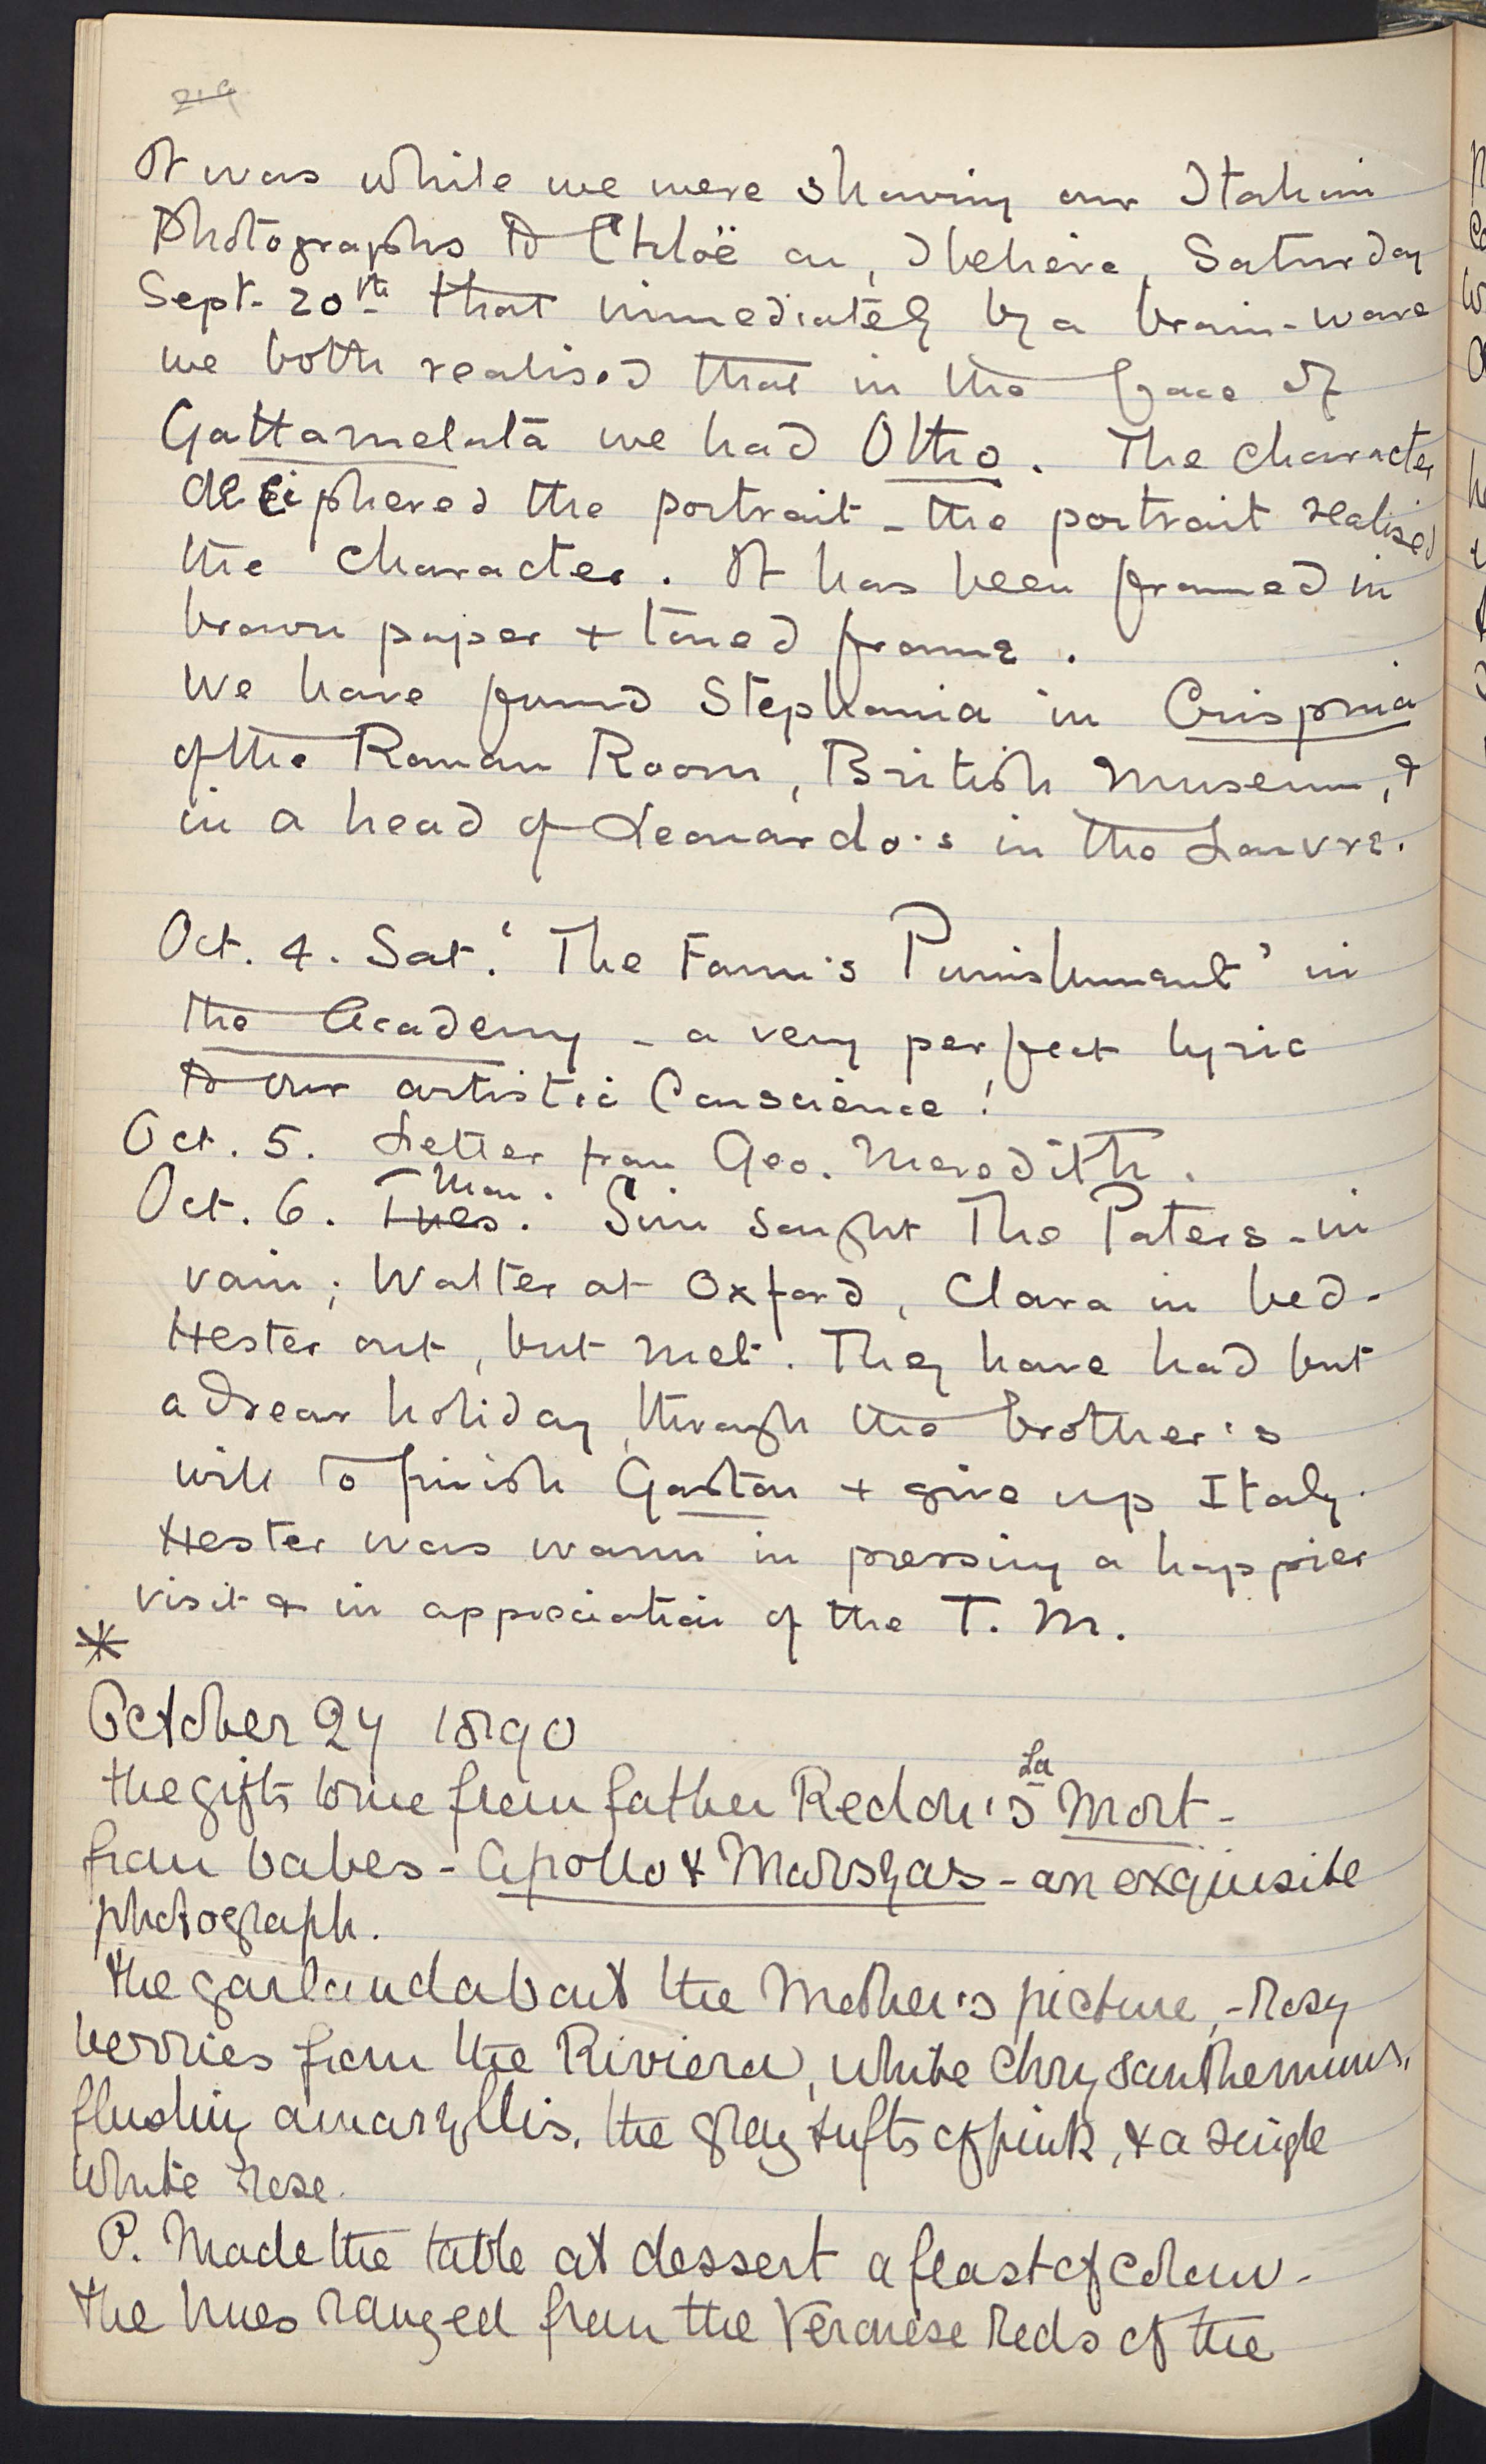 It was while we were showing our Italian
Photographs to Chloë on, I believe, Saturday
Sept. 20th that immediately by a brain-wave
we both realised that in the face of
Gattamelata we had Otho. The character
deciphered the portrait - the portrait realised
the character. It has been framed in
brown paper + toned frame.
We have found Stephania in Crispina
of the Roman Room, British Museum, &
in a head of Leonardo's in the Louvre.
Oct. 4. Sat. 'The Faun's Punishment' in
the Academy - a very perfect lyric
to our artistic Conscience!
Oct. 5. Letter from Geo. Meredith.
Oct. 6. Tues. Mon. Sim sought The Paters - in
vain; Walter at Oxford, Clara in bed -
Hester out, but met. They have had but
a drear holiday, through the brother's
will to finish Gaston + give up Italy.
Hester was warm in pressing a happier
visit & in appreciation of the T. M.
*
October 27 1890
the gifts to me from father Redon's La Mort -
from babes - Apollo & Marsyas - an exquisite
photograph.
The garland about the Mother's picture, - rosy
berries from the Riviera, white chrysanthemums,
flushing amaryllis, the gray tufts of pink, & a single
white rose.
P. Made the table at dessert a feast of colour -
The hues ranged from the Veronese reds of the